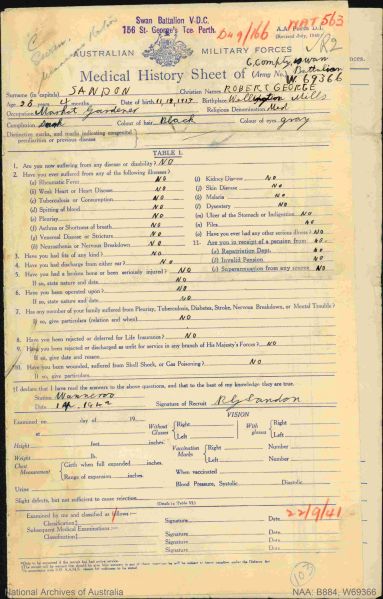 Swan Battalion V.D.C.
756 St. George's Tce. Perth.
MAT 563
AUSTRALIAN MILITARY FORCES
R2
Medical History Sheet of (Army No.) W 69366
Surname (in capitals) SANDON Christian Names ROBERT GEORGE
Age 28 years 4 months Date of birth Birthplace Mills
Occupation Market Gardener Religious Denomination
Complexion Dark Colour of hair Black Colour of eyes gray
Distinctive marks, and marks indicating congenital
peculiarities or previous disease
TABLE I.
1. Are you now suffering from any disease or disability? NO
2. Have you ever suffered from any of the following illnesses?
(a) Rheumatic Fever NO
(b) Weak Heart or Heart Disease NO
(c) Tuberculosis or Consumption NO
(d) Spitting of blood NO
(e) Pleurisy NO
(f) Asthma or Shortness of breath NO
(g) Venereal Disease or Stricture NO
(h) Neurasthenia or Nervous Breakdown NO
(i) Kidney Disease NO
(j) Skin Disease NO
(k) Malaria NO
(l) Dysentery NO
(m) Ulcer of the Stomach or Indigestion NO
(n) Piles NO
(o) Have you ever had any other serious illness? NO
11. Are you in receipt of a pension from NO
(a) Repatriation Dept. NO
(b) Invalid Pension NO
(c) Superannuation from any source NO
3. Have you had fits of any kind? NO
4. Have you had discharge from either ear? NO
5. Have you had a broken bone or been seriously injured? NO
If so, state nature and date NO
6. Have you been operated upon? NO
If so, state nature and date NO
7. Has any member of your family suffered from Pleurisy, Tuberculosis, Diabetes, Stroke, Nervous Breakdown, or Mental Trouble?
If so, give particulars (relation and when) NO
8. Have you been rejected or deferred for Life Insurance? NO
9. Have you been rejected or discharged as unfit for service in any branch of His Majesty's Forces? NO
If so, give date and reason
10. Have you been wounded, suffered from Shell Shock, or Gas Poisoning? NO
If so, give particulars
I declare that I have read the answers to the above questions, and that to the best of my knowledge they are true.
Station Wanneroo
Date Signature of Recruit R G Sandon
Examined on day of 19
at
Height feet inches
Weight lb.
Chest Measurement
Girth when full expanded inches.
Range of expansion inches.
Urine
VISION
Without Glasses Right Left
With glasses Right Left
Vaccination Marks Right Left Number Number
When vaccinated
Blood Pressure, Systolic Diastolic
Slight defects, but not sufficient to cause rejection.
(Details in Table VI.)
Examined by me and classified as 1
Classification Signature Date 22/9/41
Subsequent Medical Examinations:— Signature Date
Classification Signature Date
103
National Archives of Australia
NAA: B884, W69366